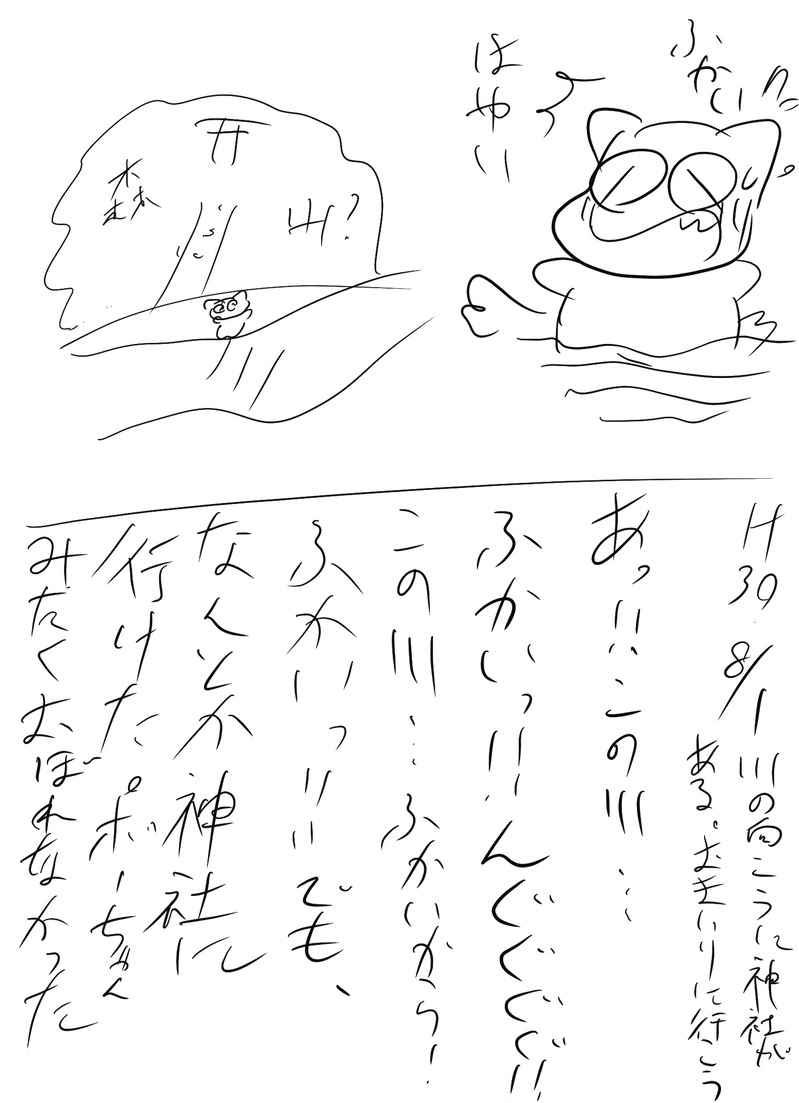 ふかい
はやい
山?
森
H30. 8/1 川の向こうに神社が
ある。おまいりに行こう
あっ!!この川…
ふかいっ!!んぐぐぐぐ!!
この川…ふかいから!
ふかいっ!!でも、
なんとか神社に
行けた ポーちゃん
みたくおぼれなかった